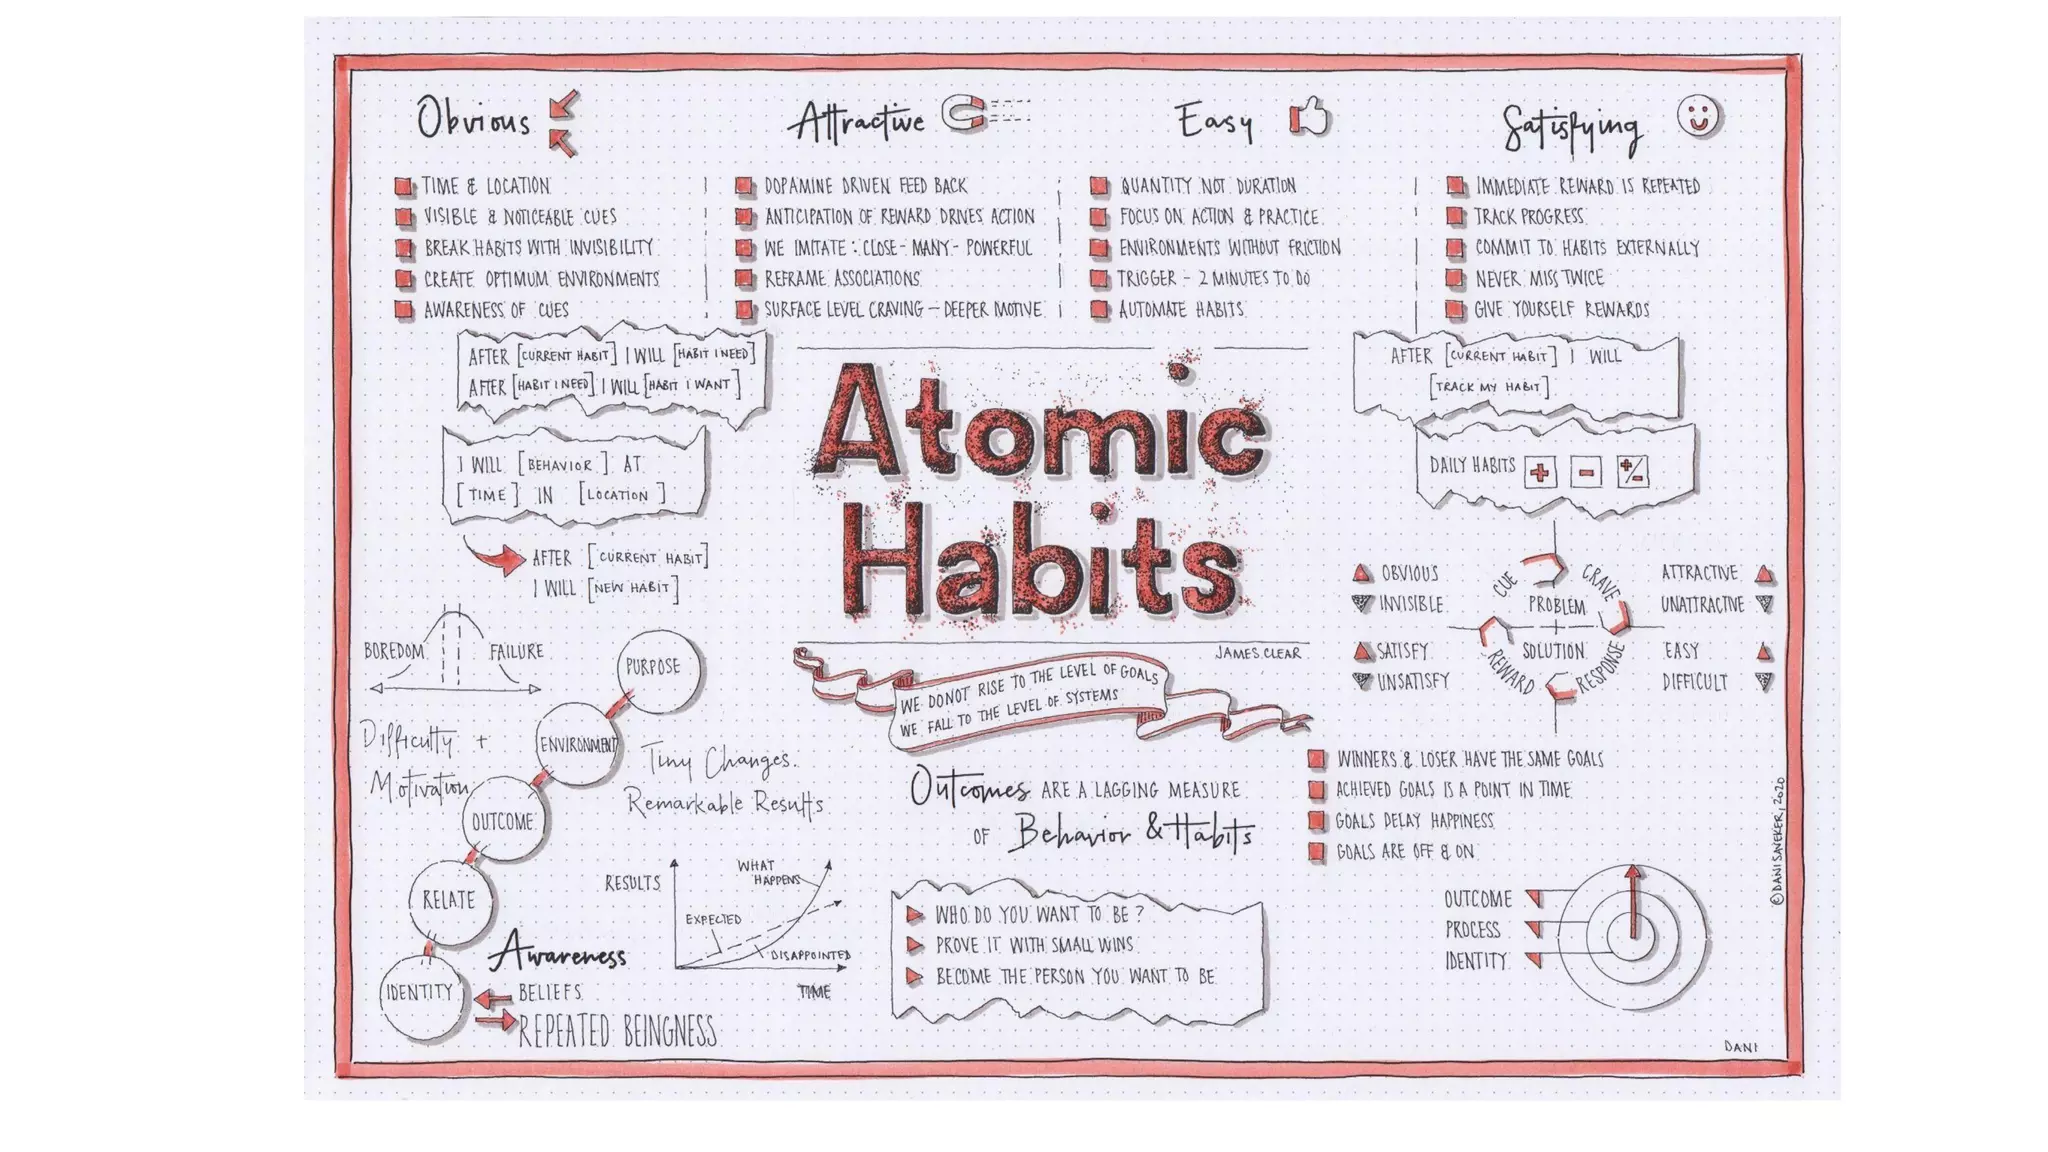 Obvious
TIME & LOCATION
VISIBLE & NOTICEABLE CUES
BREAK HABITS WITH INVISIBILITY
CREATE OPTIMUM ENVIRONMENTS
AWARENESS OF CUES
Attractive
DOPAMINE DRIVEN FEED BACK
ANTICIPATION OF REWARD DRIVES ACTION
WE IMITATE: CLOSE - MANY - POWERFUL
REFRAME ASSOCIATIONS
SURFACE LEVEL CRAVING – DEEPER MOTIVE
Easy
QUANTITY NOT DURATION
FOCUS ON ACTION & PRACTICE
ENVIRONMENTS WITHOUT FRICTION
TRIGGER - 2 MINUTES TO DO
AUTOMATE HABITS
Satisfying
IMMEDIATE REWARD IS REPEATED
TRACK PROGRESS
COMMIT TO HABITS EXTERNALLY
NEVER MISS TWICE
GIVE YOURSELF REWARDS
AFTER [CURRENT HABIT] I WILL [HABIT I NEED]
AFTER [HABIT I NEED] I WILL [HABIT I WANT]
I WILL [BEHAVIOR] AT
[TIME] IN [LOCATION]
AFTER [CURRENT HABIT]
I WILL [NEW HABIT]
Atomic
Habits
JAMES CLEAR
WE DO NOT RISE TO THE LEVEL OF GOALS
WE FALL TO THE LEVEL OF SYSTEMS
AFTER [CURRENT HABIT] I WILL
[TRACK MY HABIT]
DAILY HABITS + - +/-
OBVIOUS
INVISIBLE
SATISFY
UNSATISFY
CUE
CRAVE
PROBLEM
SOLUTION
REWARD
RESPONSE
ATTRACTIVE
UNATTRACTIVE
EASY
DIFFICULT
BOREDOM
FAILURE
Difficulty +
Motivation
PURPOSE
ENVIRONMENT
OUTCOME
RELATE
IDENTITY
Tiny Changes.
Remarkable Results
Awareness
BELIEFS
REPEATED BEINGNESS
RESULTS
WHAT
HAPPENS
EXPECTED
DISAPPOINTED
TIME
Outcomes ARE A LAGGING MEASURE
OF Behavior & Habits
WHO DO YOU WANT TO BE?
PROVE IT WITH SMALL WINS
BECOME THE PERSON YOU WANT TO BE
WINNERS & LOSER HAVE THE SAME GOALS
ACHIEVED GOALS IS A POINT IN TIME
GOALS DELAY HAPPINESS
GOALS ARE OFF & ON
OUTCOME
PROCESS
IDENTITY
©DANI SAVEKER, 2020
DANI